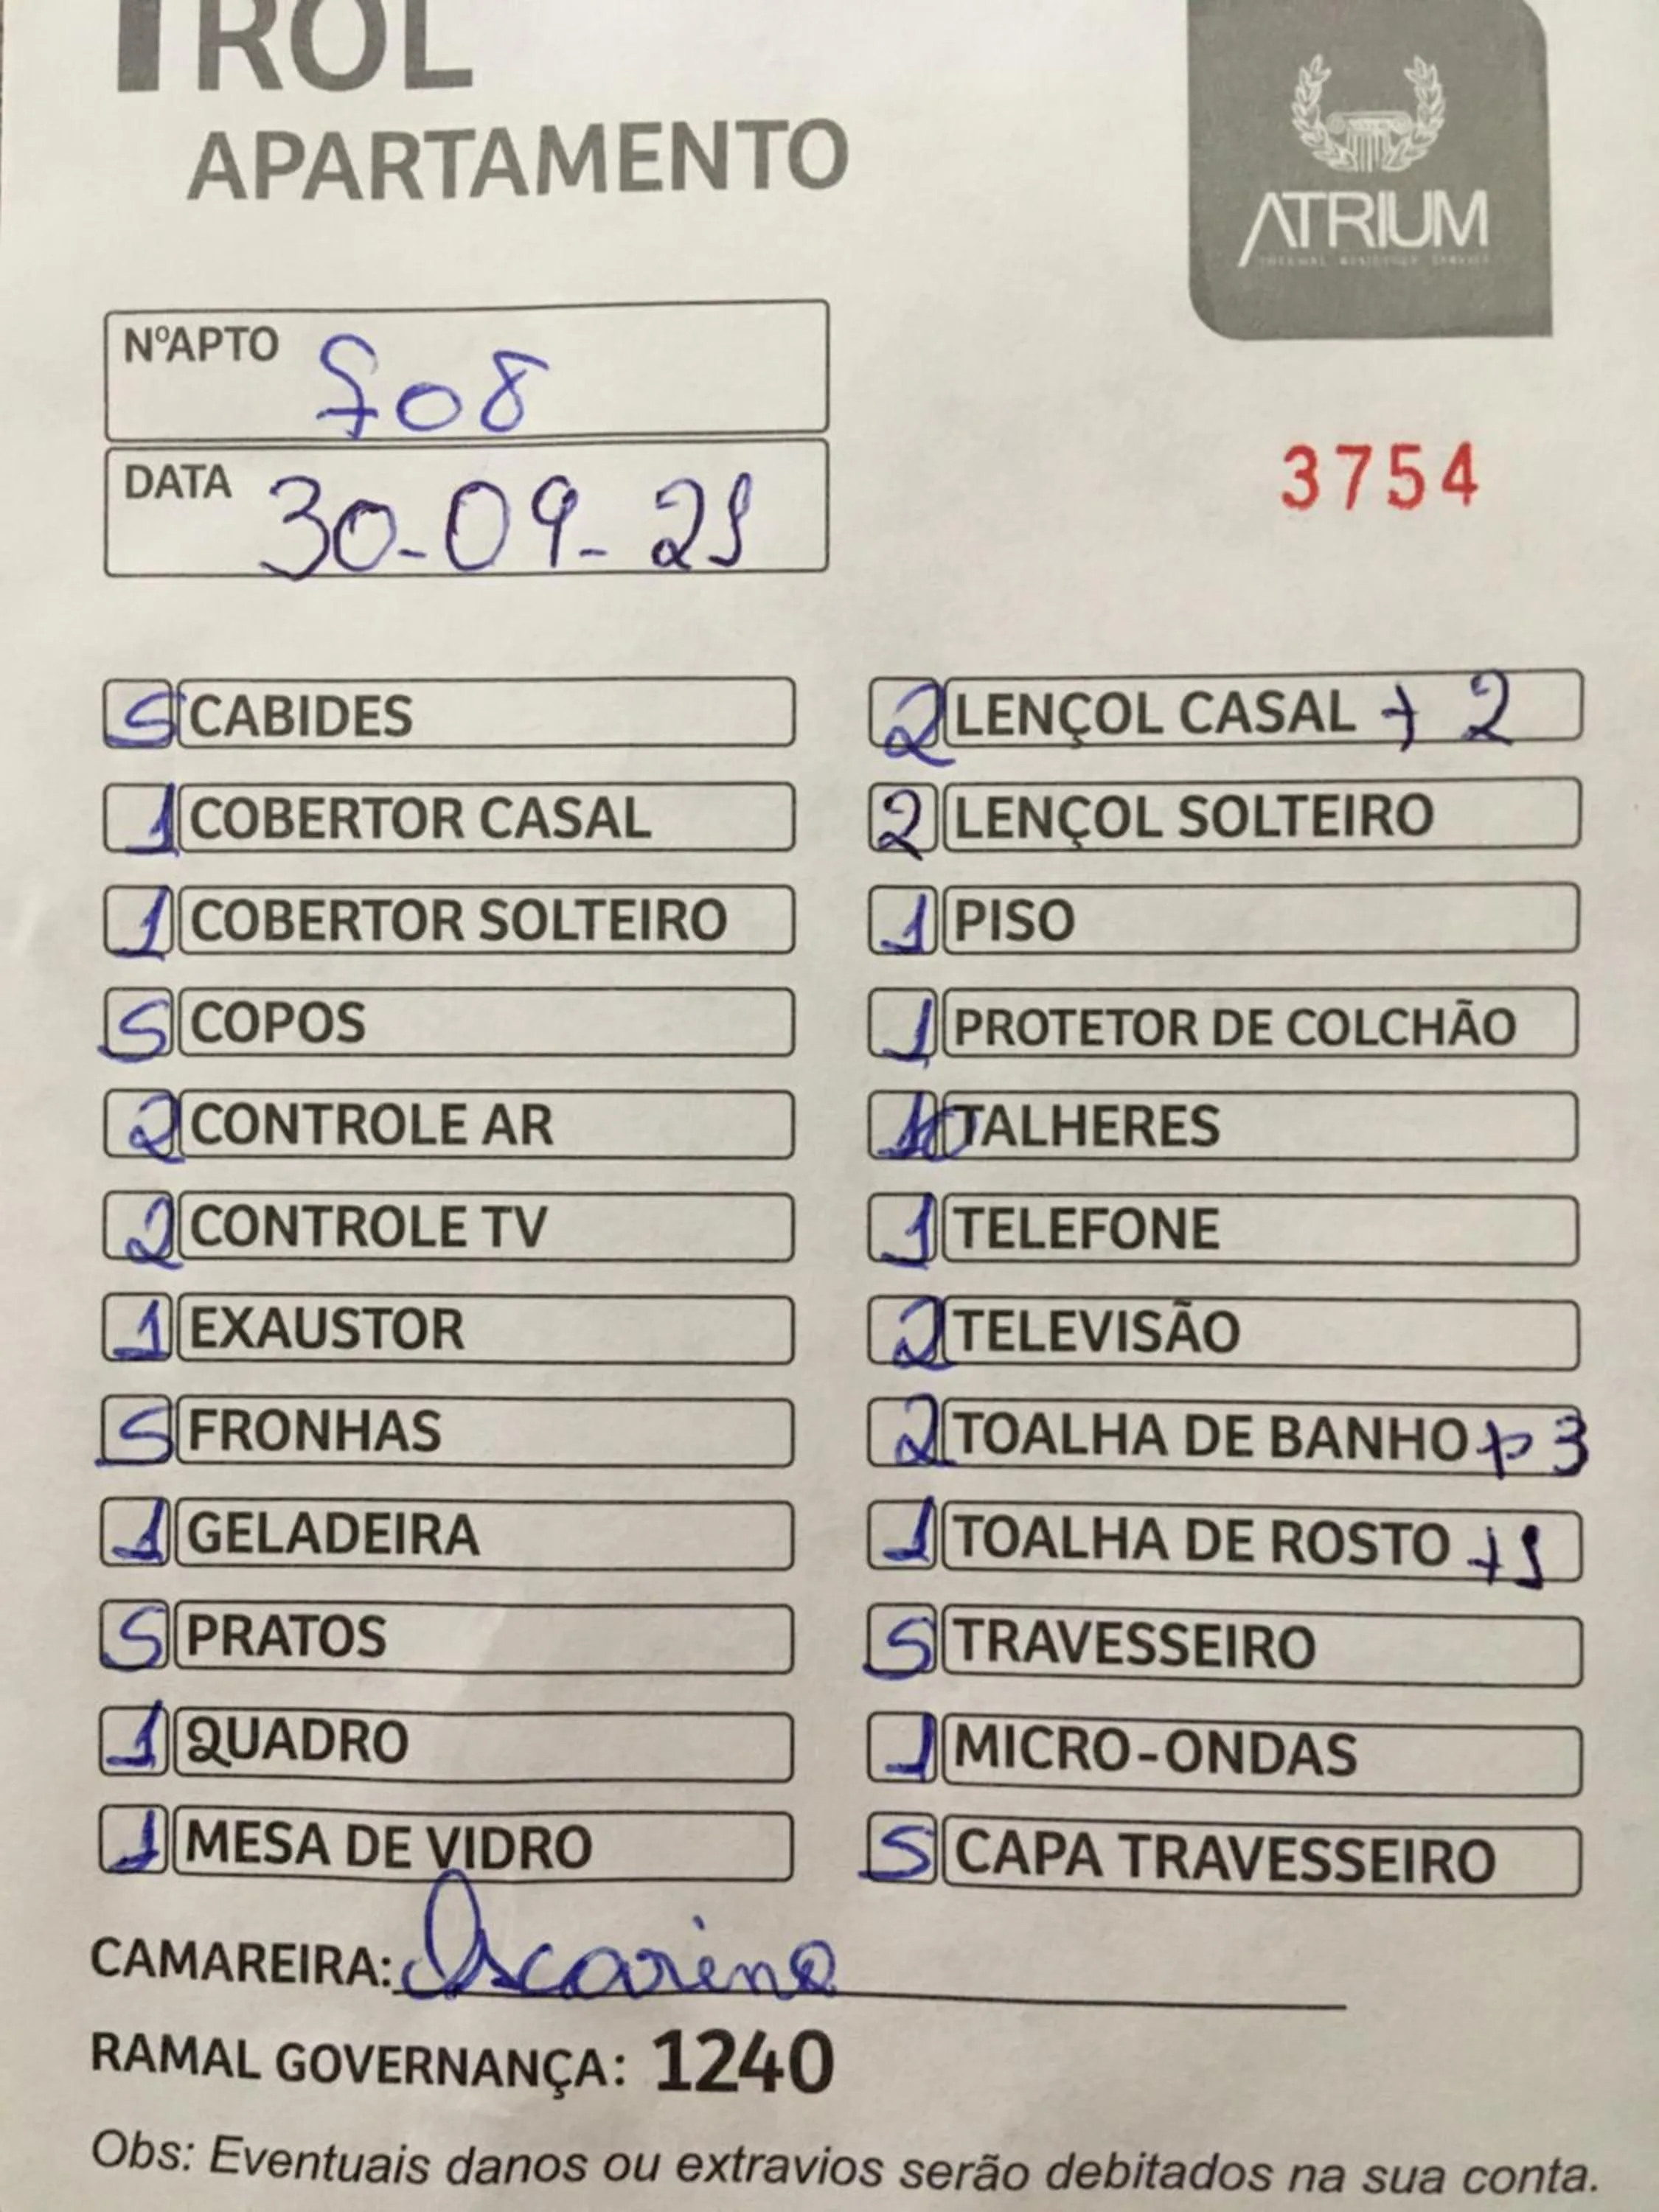 ROL
APARTAMENTO
ATRIUM
NºAPTO 708
DATA 30-09-21
3754
5 CABIDES
1 COBERTOR CASAL
1 COBERTOR SOLTEIRO
5 COPOS
2 CONTROLE AR
2 CONTROLE TV
1 EXAUSTOR
5 FRONHAS
1 GELADEIRA
5 PRATOS
1 QUADRO
1 MESA DE VIDRO
2 LENÇOL CASAL + 2
2 LENÇOL SOLTEIRO
1 PISO
1 PROTETOR DE COLCHÃO
10 TALHERES
1 TELEFONE
2 TELEVISÃO
2 TOALHA DE BANHO + 3
1 TOALHA DE ROSTO +1
5 TRAVESSEIRO
1 MICRO-ONDAS
5 CAPA TRAVESSEIRO
CAMAREIRA: Iscarina
RAMAL GOVERNANÇA: 1240
Obs: Eventuais danos ou extravios serão debitados na sua conta.